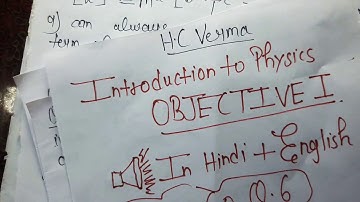 a) can always
term
H.C Verma
Introduction to Physics
OBJECTIVE I
In Hindi + English
Q.6